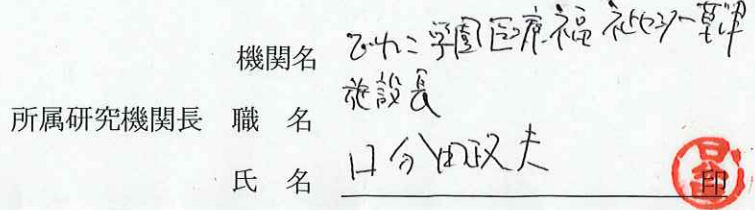 機関名 びわこ学園医療福祉センター草津
所属研究機関長 職 名 施設長
氏 名 口分田政夫 印